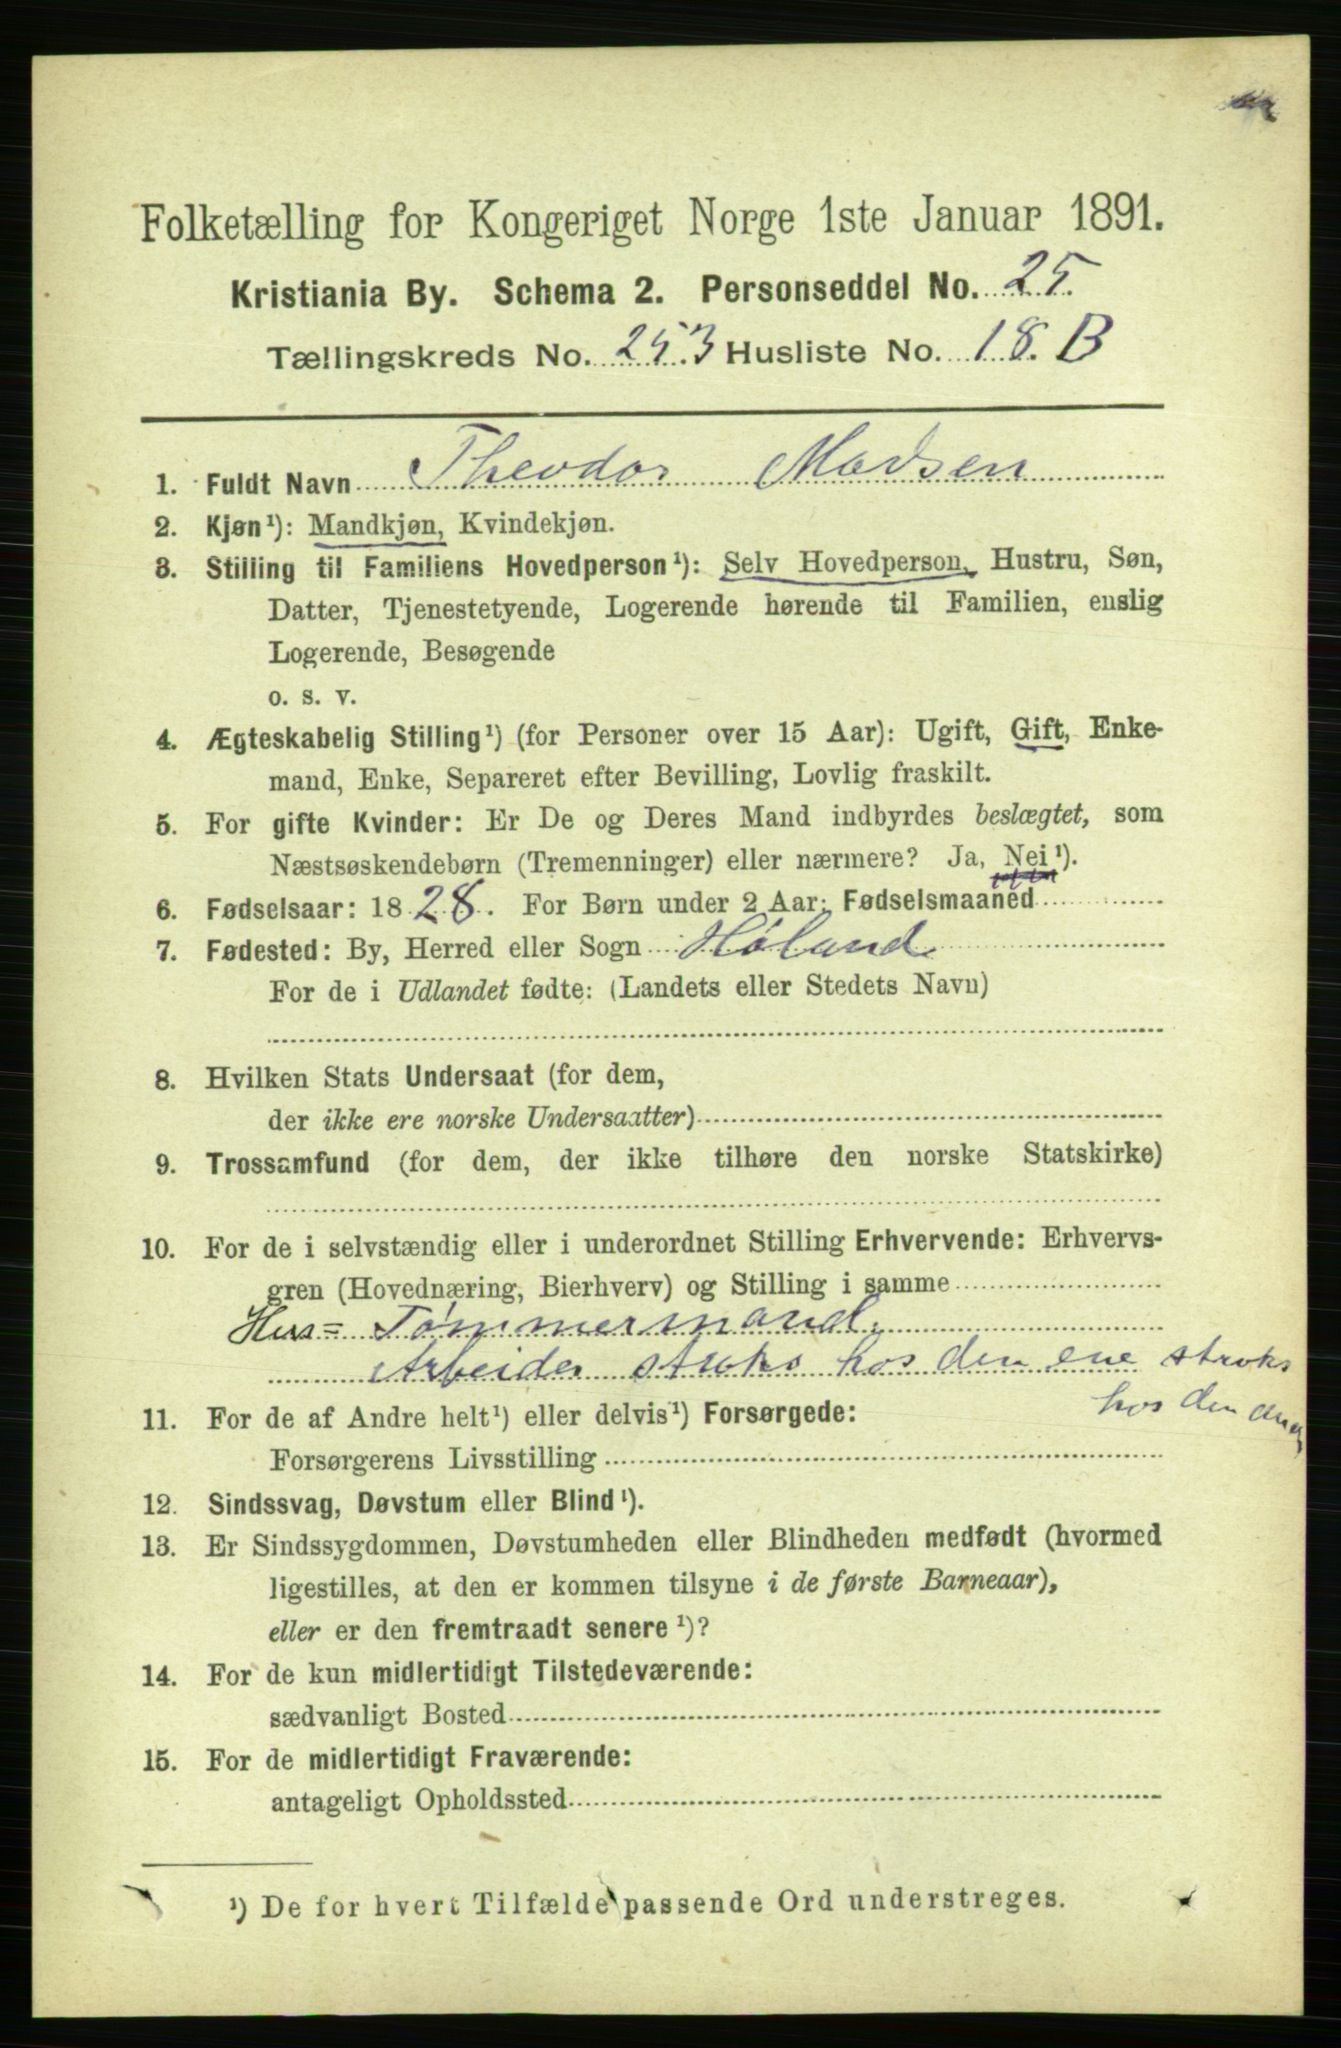 Folketælling for Kongeriget Norge 1ste Januar 1891.
Kristiania By. Schema 2. Personseddel No. 25.
Tællingskreds No. 253 Husliste No. 18. B
1. Fuldt Navn Theodor Madsen
2. Kjøn¹): Mandkjøn, Kvindekjøn.
3. Stilling til Familiens Hovedperson¹): Selv Hovedperson, Hustru, Søn,
Datter, Tjenestetyende, Logerende hørende til Familien, enslig
Logerende, Besøgende
o. s. v.
4. Ægteskabelig Stilling¹) (for Personer over 15 Aar): Ugift, Gift, Enke-
mand, Enke, Separeret efter Bevilling, Lovlig fraskilt.
5. For gifte Kvinder: Er De og Deres Mand indbyrdes beslægtet, som
Næstsøskendebørn (Tremenninger) eller nærmere? Ja, Nei¹).
6. Fødselsaar: 1828. For Børn under 2 Aar: Fødselsmaaned
7. Fødested: By, Herred eller Sogn Høland
For de i Udlandet fødte: (Landets eller Stedets Navn)
8. Hvilken Stats Undersaat (for dem,
der ikke ere norske Undersaatter)
9. Trossamfund (for dem, der ikke tilhøre den norske Statskirke)
10. For de i selvstændig eller i underordnet Stilling Erhvervende: Erhvervs-
gren (Hovednæring, Bierhverv) og Stilling i samme
Hus= Tømmermand.
Arbeider straks hos den ene straks
hos den
11. For de af Andre helt¹) eller delvis¹) Forsørgede:
Forsørgerens Livsstilling
12. Sindssvag, Døvstum eller Blind¹).
13. Er Sindssygdommen, Døvstumheden eller Blindheden medfødt (hvormed
ligestilles, at den er kommen tilsyne i de første Barneaar),
eller er den fremtraadt senere¹)?
14. For de kun midlertidigt Tilstedeværende:
sædvanligt Bosted
15. For de midlertidigt Fraværende:
antageligt Opholdssted
¹) De for hvert Tilfælde passende Ord understreges.